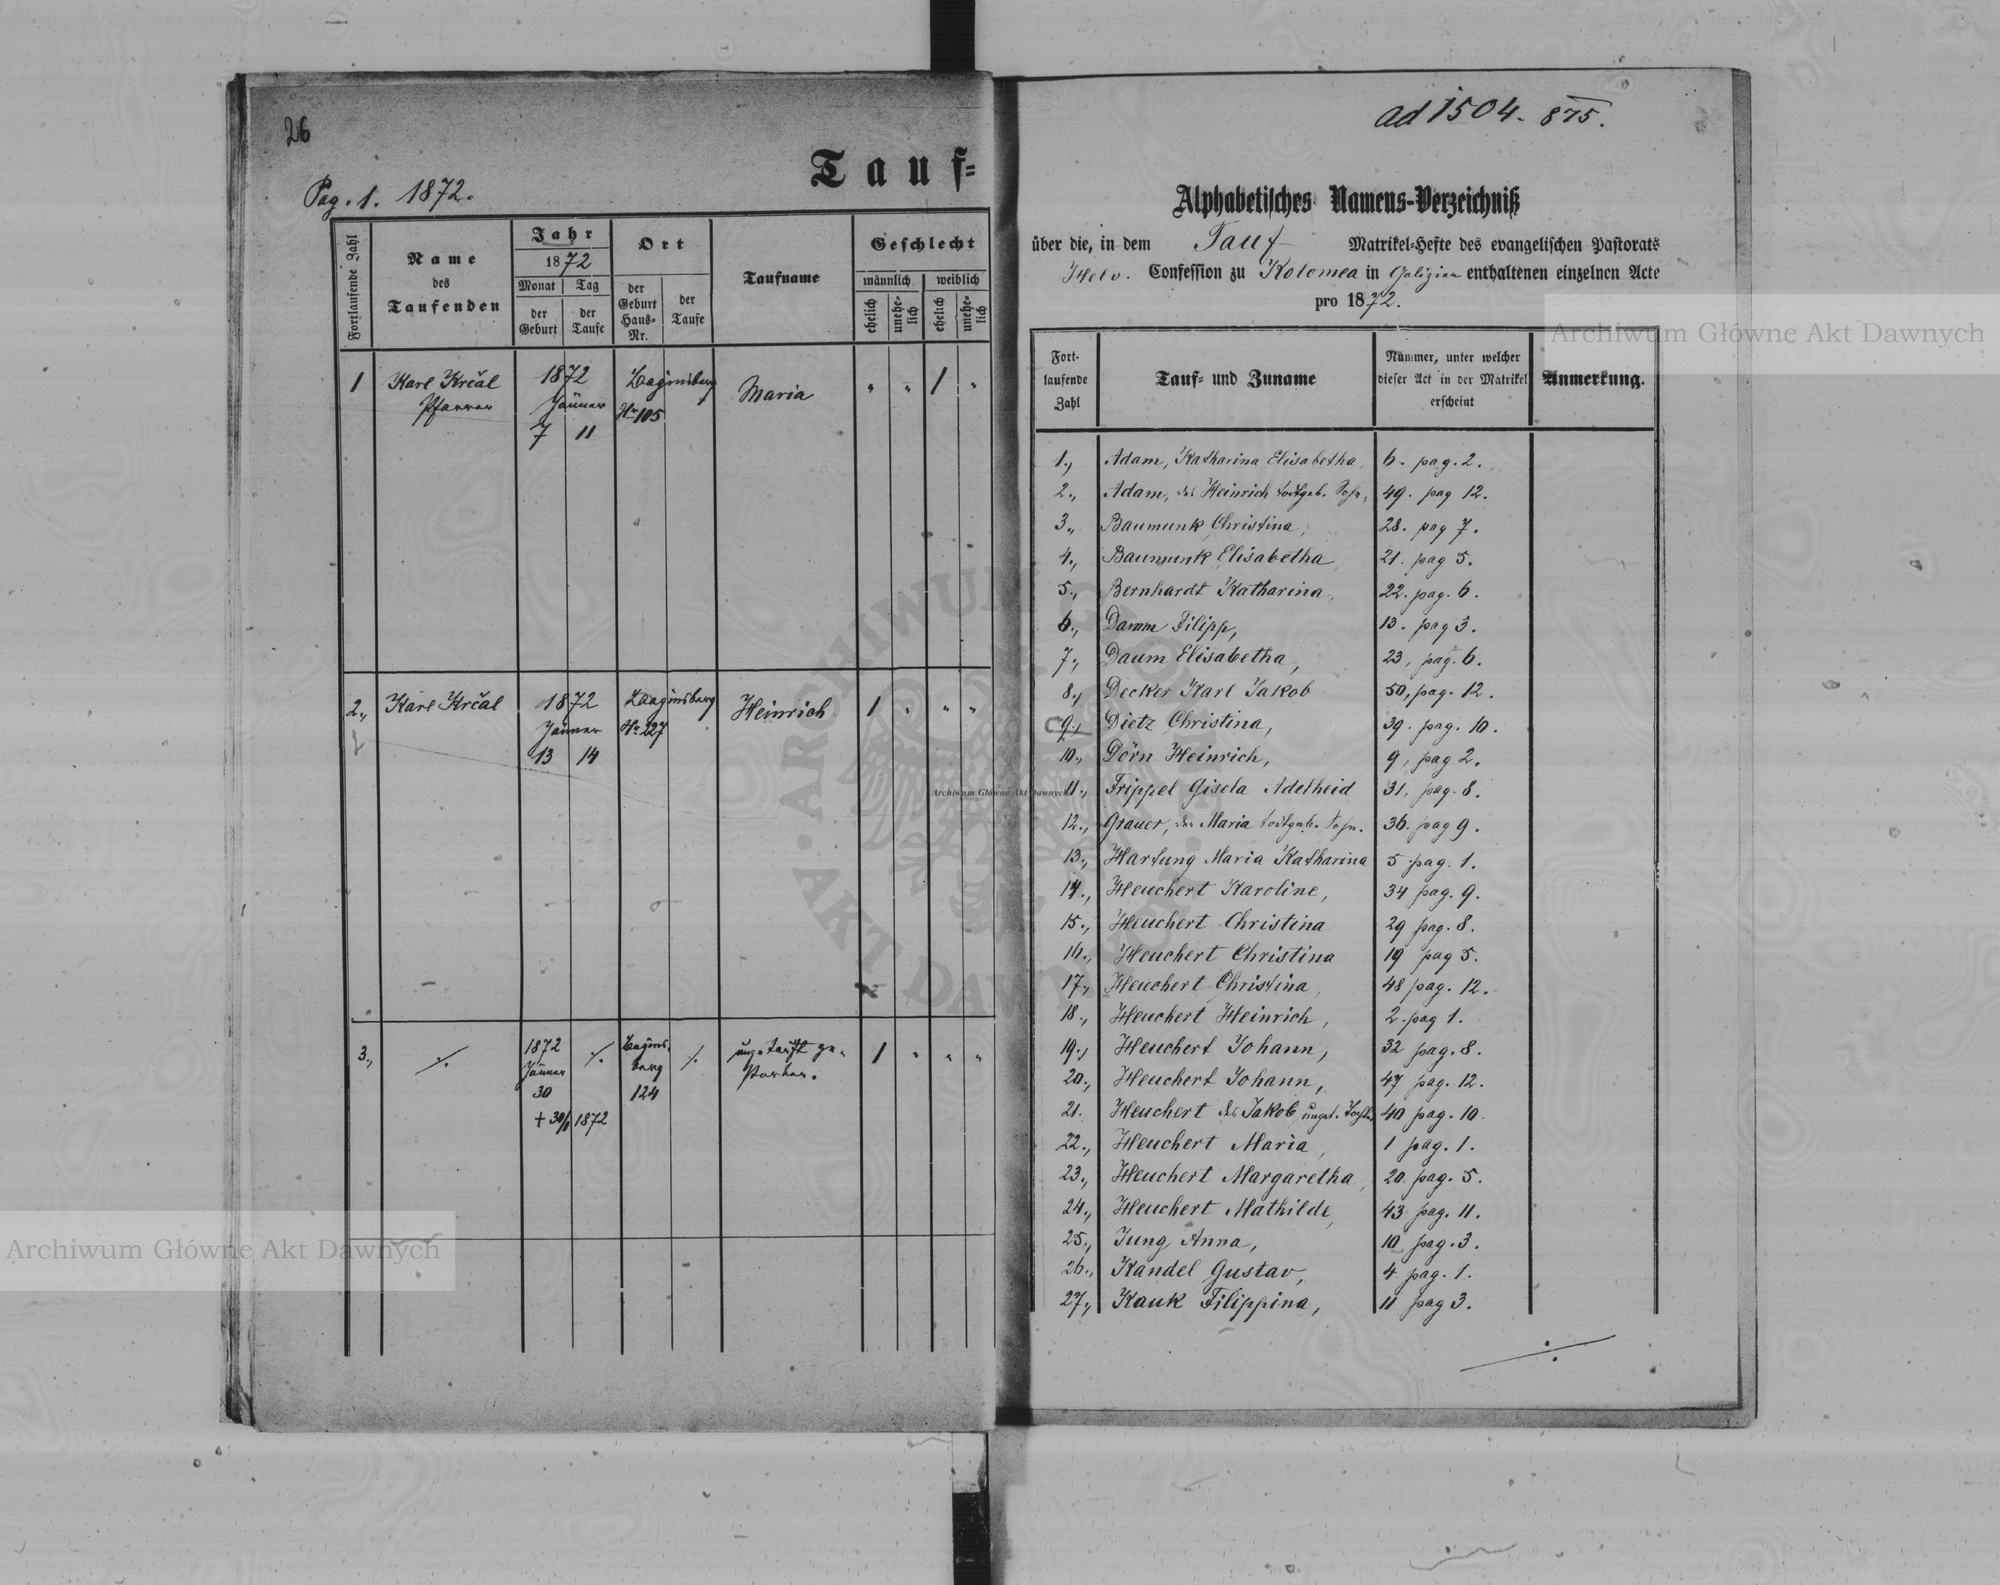 26
Tauf=
Pag. 1. 1872.
Fortlaufende Zahl
Name
des
Taufenden
Jahr
1872
Monat Tag
der Geburt
der Taufe
Ort
der Geburt Haus-Nr.
der Taufe
Taufname
Geschlecht
männlich weiblich
ehelich unehe-lich ehelich unehe-lich
1 Karl Krčal 1872 Maria " " 1 "
Pfarrer Jänner Nr 105
7 11
2., Karl Krčal 1872 Heinrich 1 " " "
Jänner Nr 227
13 14
3., ./. 1872 ./. ./. ungetauft ge- 1 " " "
Jänner berg storben.
30 124
+ 30/1 1872
ad 1504. 875.
Alphabetisches Namens-Verzeichniß
über die, in dem Tauf Matrikel-Hefte des evangelischen Pastorats
Helv. Confession zu Kolomea in Galizien enthaltenen einzelnen Acte
pro 1872.
Fort-
laufende
Zahl
Tauf- und Zuname
Nummer, unter welcher
dieser Act in der Matrikel
erscheint
Anmerkung.
1., Adam, Katharina Elisabetha, 6. pag. 2.
2., Adam, des Heinrich todtgeb. Sohn, 49. pag 12.
3., Baumunk Christina, 28. pag 7.
4., Baumunk Elisabetha 21. pag 5.
5., Bernhardt Katharina, 22. pag. 6.
6., Damm Filipp, 13. pag 3.
7., Daum Elisabetha, 23, pag. 6.
8., Decker Karl Jakob 50, pag. 12.
9., Dietz Christina, 39. pag. 10.
10., Dörn Heinrich, 9, pag 2.
11., Frippel Gisela Adelheid 31, pag. 8.
12., Grauer, der Maria todtgeb. Sohn. 36. pag 9.
13., Hartung Maria Katharina 5 pag. 1.
14., Heuchert Karoline, 34 pag. 9.
15., Heuchert Christina 29 pag. 8.
16., Heuchert Christina 19 pag 5.
17., Heuchert Christina, 48 pag. 12.
18., Heuchert Heinrich, 2 pag 1.
19., Heuchert Johann, 32 pag. 8.
20., Heuchert Johann, 47 pag. 12.
21. Heuchert des Jakob unget. Tochter 40 pag. 10.
22., Heuchert Maria, 1 pag. 1.
23., Heuchert Margaretha, 20 pag. 5.
24., Heuchert Mathilde, 43 pag. 11.
25., Jung Anna, 10 pag. 3.
26., Kandel Gustav, 4 pag. 1.
27., Kauk Filippina, 11 pag 3.
./.
Archiwum Główne Akt Dawnych
Archiwum Główne Akt Dawnych
Archiwum Główne Akt Dawnych